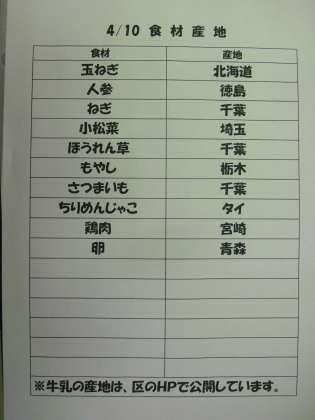 4/10 食材産地
食材 産地
玉ねぎ 北海道
人参 徳島
ねぎ 千葉
小松菜 埼玉
ほうれん草 千葉
もやし 栃木
さつまいも 千葉
ちりめんじゃこ タイ
鶏肉 宮崎
卵 青森
※牛乳の産地は、区のHPで公開しています。